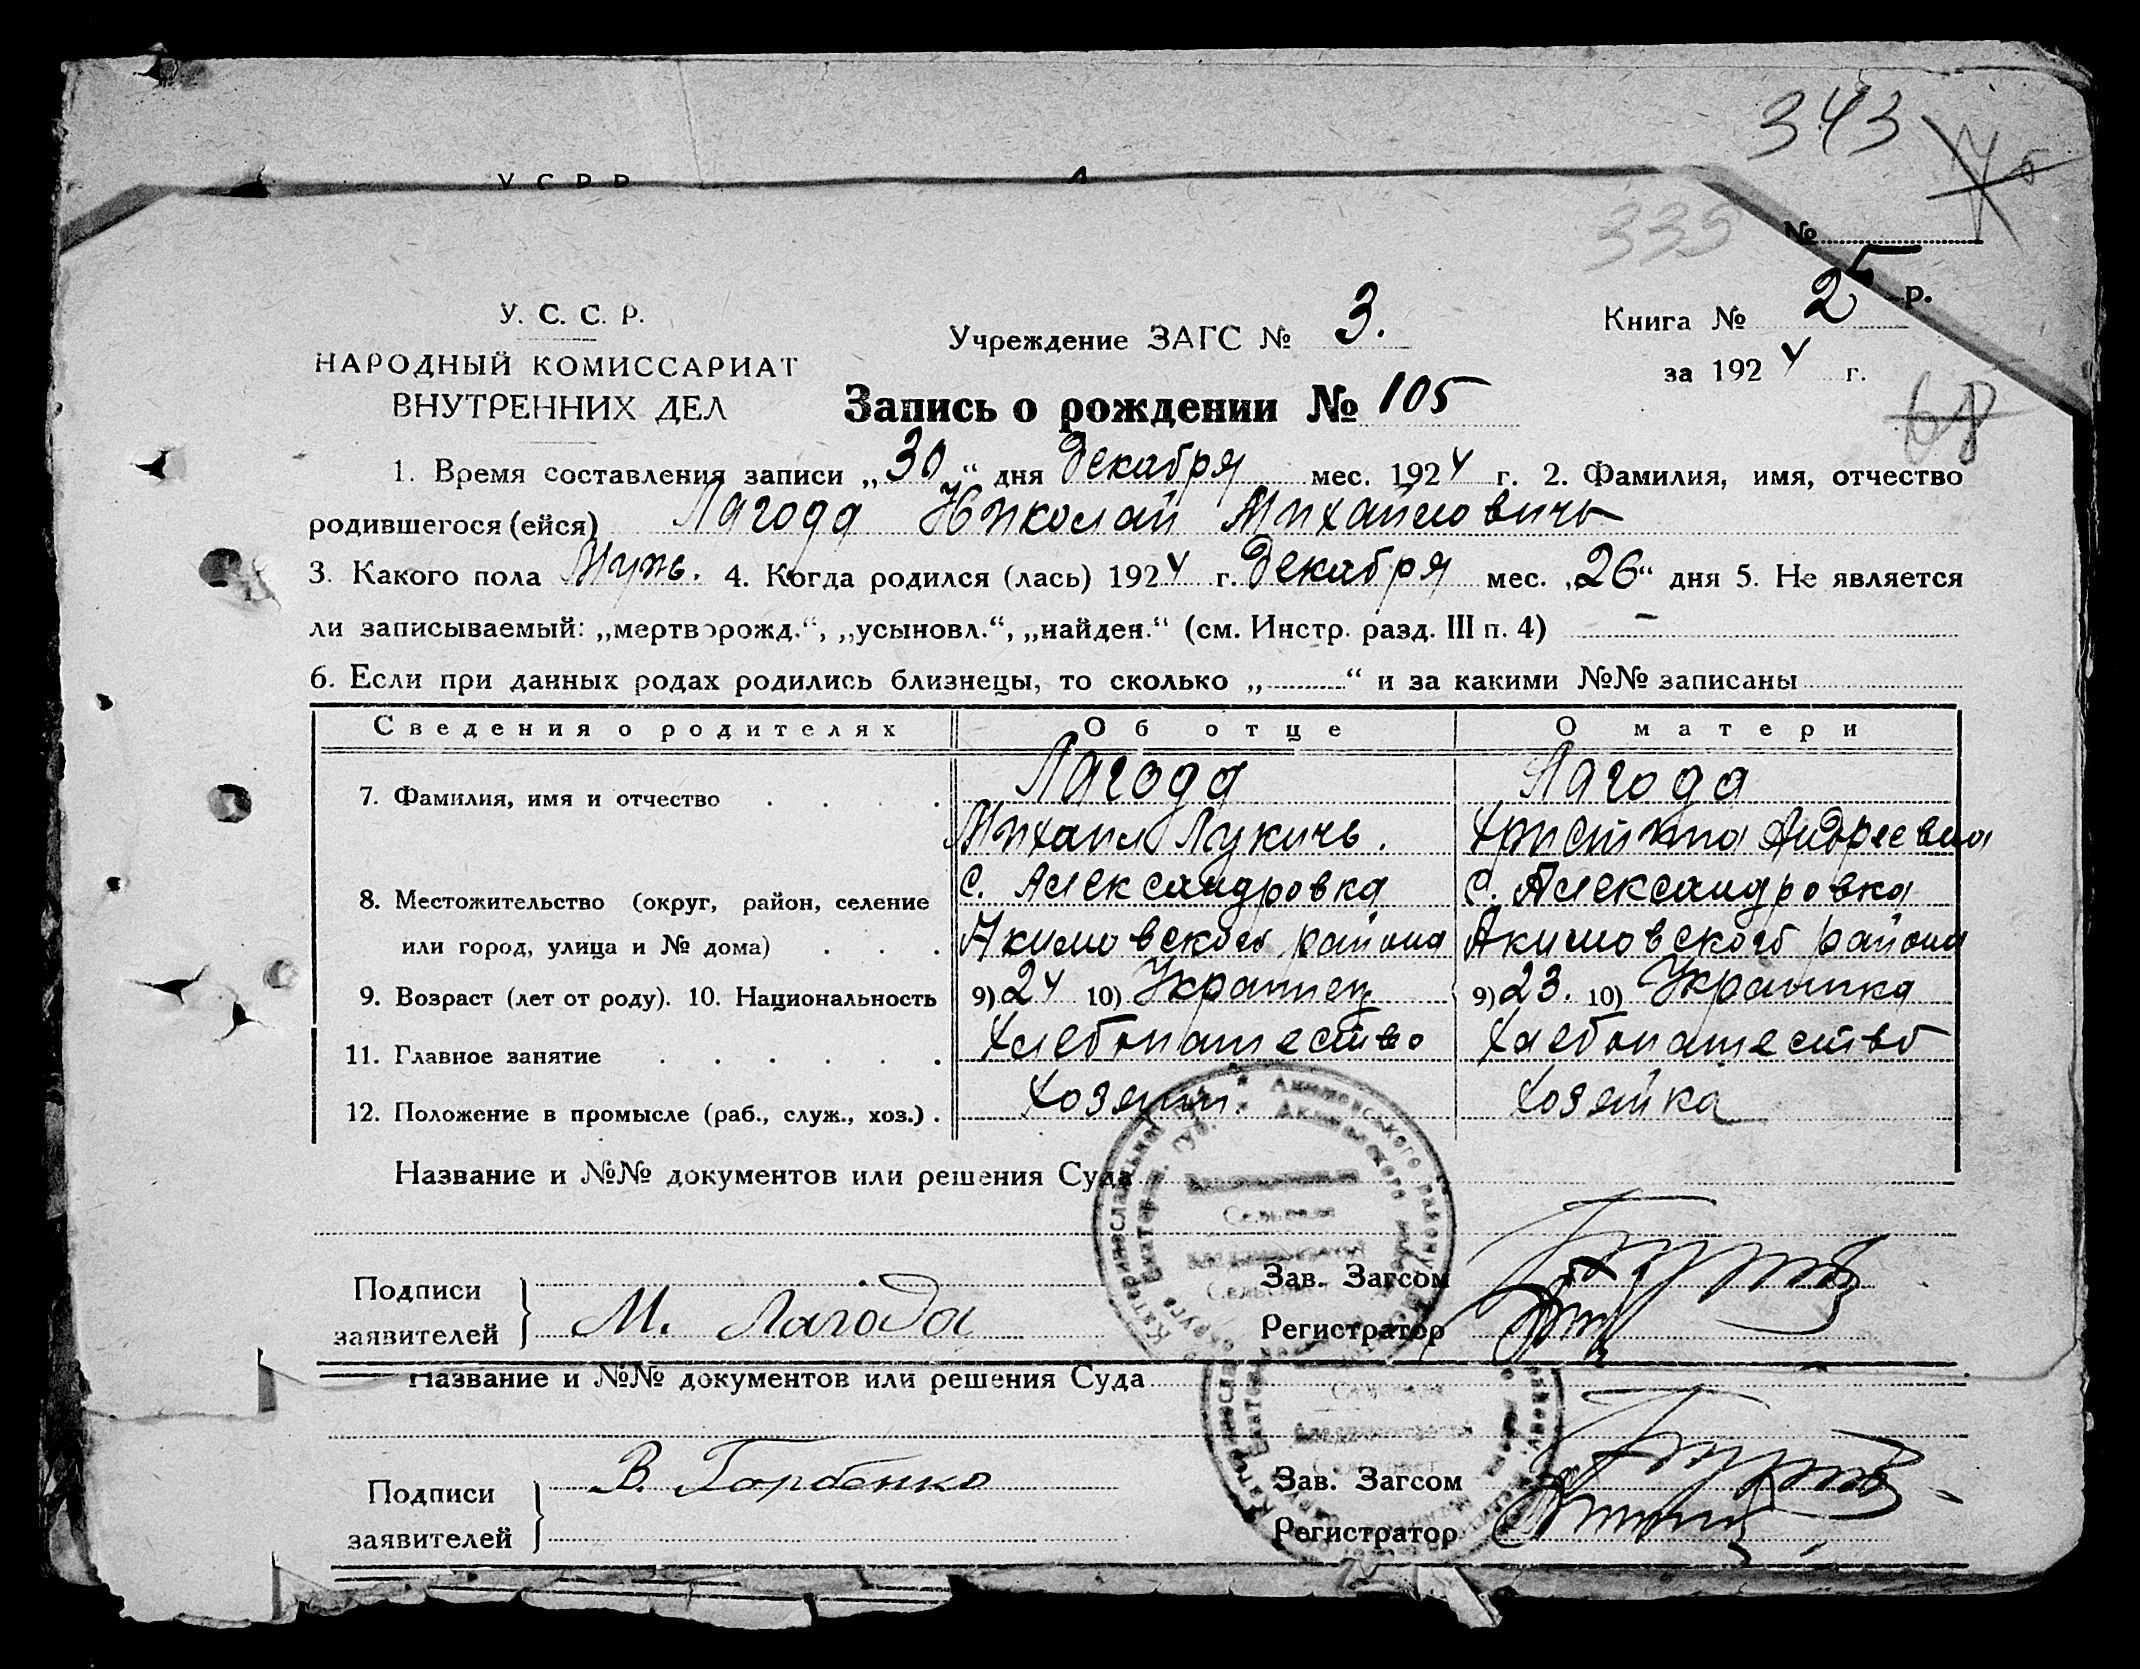 343
У С Р Р
№
335
р.
У. С. С. Р.
НАРОДНЫЙ КОМИССАРИАТ
ВНУТРЕННИХ ДЕЛ
Учреждение ЗАГС № 3.
Книга № 2
за 1924 г.
68
Запись о рождении № 105
1. Время составления записи „30“ дня Декабря мес. 1924 г. 2. Фамилия, имя, отчество
родившегося (ейся) Лагода Николай Михайловичь
3. Какого пола Мужь. 4. Когда родился (лась) 1924 г. Декабря мес. „26“ дня 5. Не является
ли записываемый: „мертворожд.“, „усыновл.“, „найден.“ (см. Инстр. разд. III п. 4) –
6. Если при данных родах родились близнецы, то сколько „ “ и за какими №№ записаны
Сведения о родителях Об отце О матери
7. Фамилия, имя и отчество Лагода Лагода
Михаил Лукичь. Христина Андреевна
8. Местожительство (округ, район, селение с. Александровка с. Александровка
или город, улица и № дома) Акимовского района Акимовского района
9. Возраст (лет от роду). 10. Национальность 9) 24 10) Украинец 9) 23. 10) Украинка
11. Главное занятие Хлебопашество Хлебопашество
12. Положение в промысле (раб., служ., хоз.) Хозяин. Хозяйка
Название и №№ документов или решения Суда
Подписи
заявителей М. Лагода
Зав. Загсом
Регистратор
Название и №№ документов или решения Суда
Подписи В. Горбенко
заявителей
Зав. Загсом
Регистратор